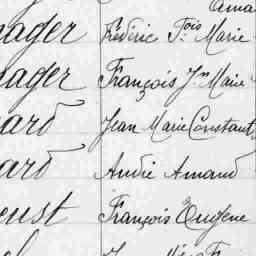 ager Frédéric Fois Marie
ager François Jn Marie
ard Jean Marie Constant
ard André Amand
eust François Eugène